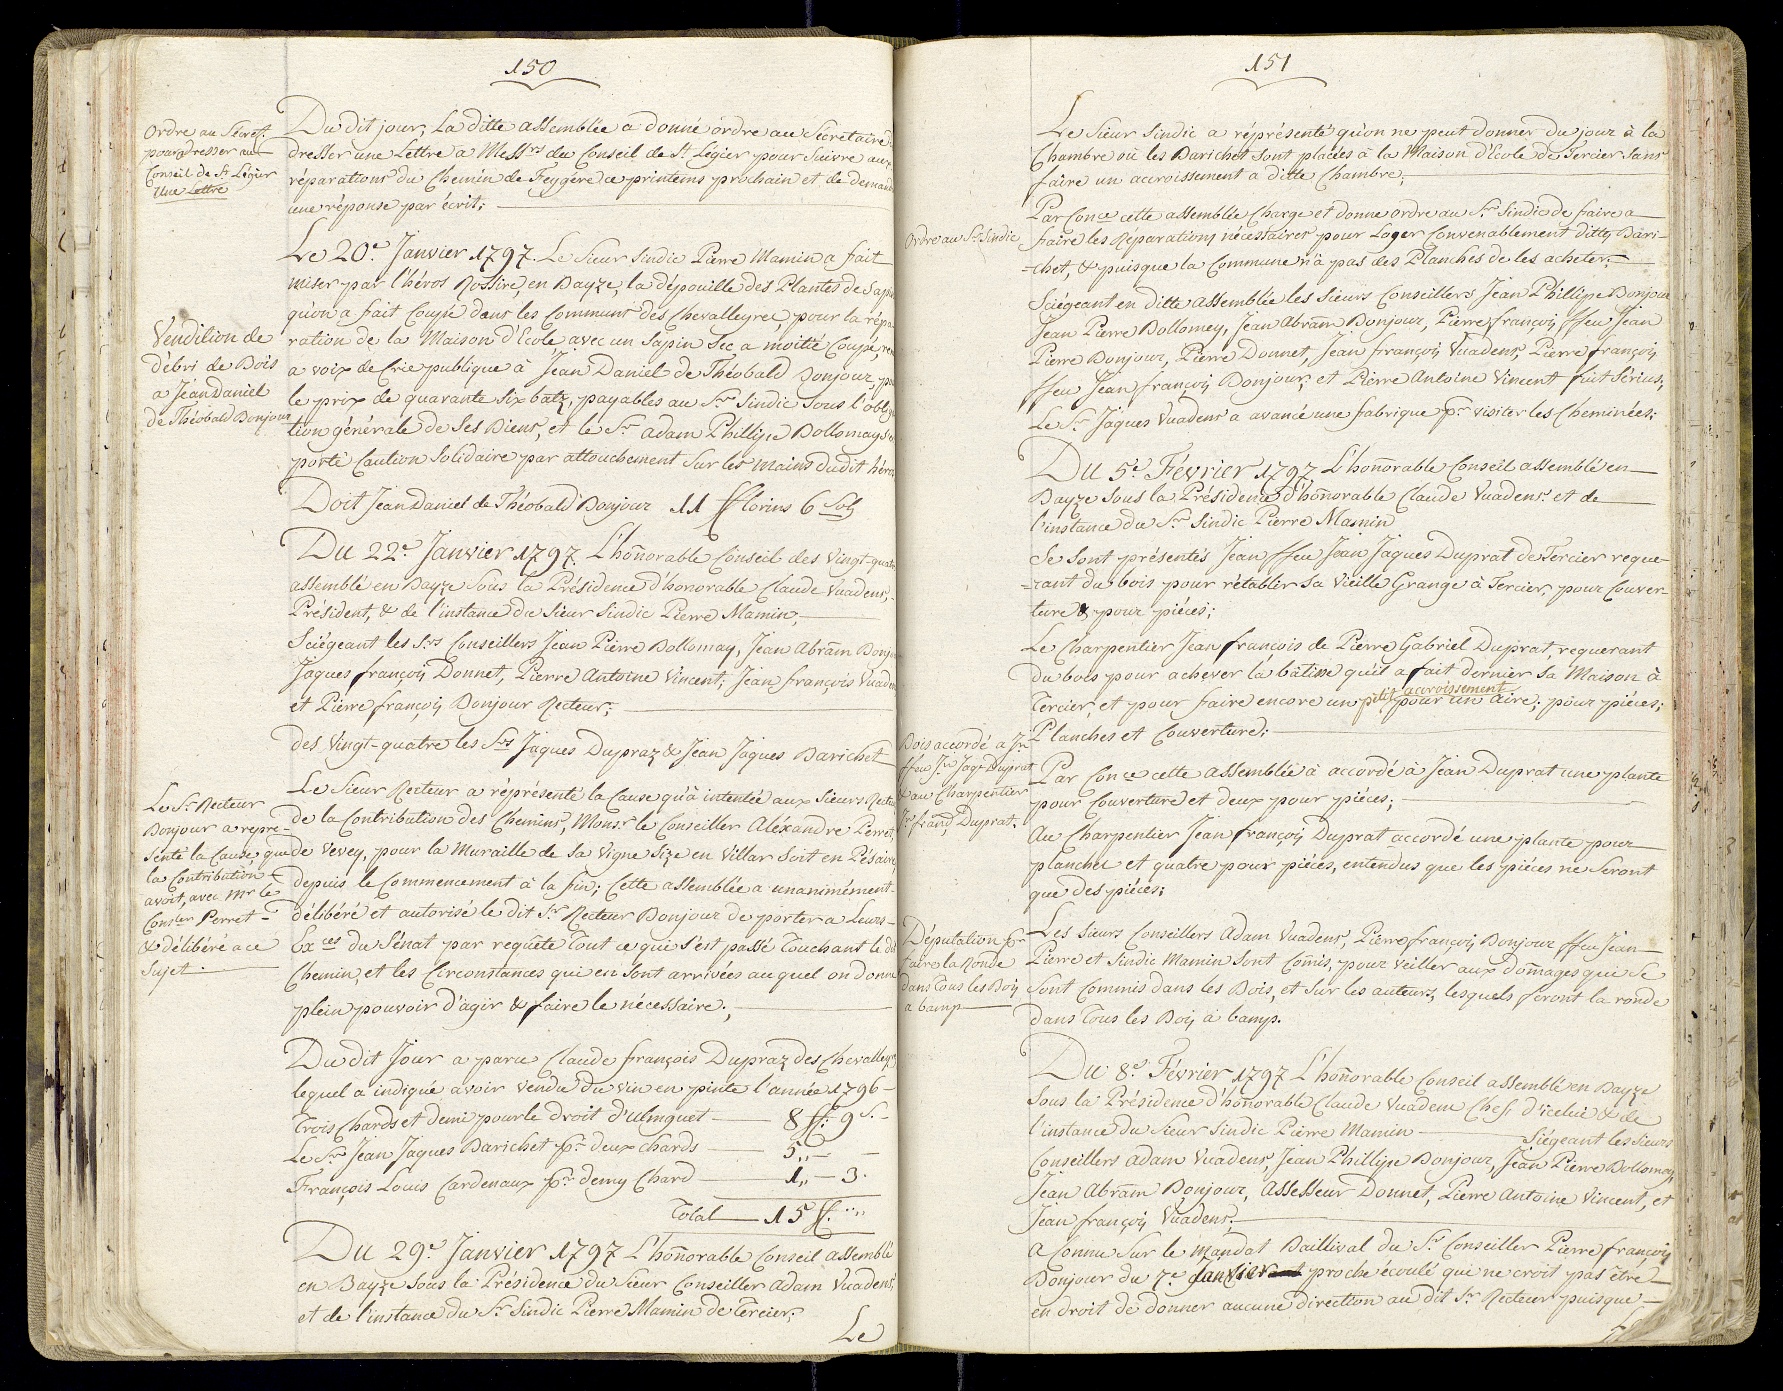 150
Ordre au Secret.
pour adresser au
Conseil de St. Légier
une Lettre
Du dit jour, La ditte assemblée a donné ordre au Secretaire
dresser une Lettre a Messrs du Conseil de St. Légier pour suivre aux
réparations du Chemin de Feygére ce printems prochain et de demand
une réponse par écrit;
Le 20e. Janvier 1797. Le Sieur Sindic Pierre Mamin a fait
miser par l'héros Rossire, en Bayze, la dépouille des Plantes de Sapin
qu'on a fait Coupé dans les Communs des Chevalleyres, pour la répa
ration de la Maison d'Ecole avec un Sapin Sec a moitié Coupé,
Vendition de
débri de Bois
a Jean Daniel
de Théobald Bonjour
a voix de Crie publique à Jean Daniel de Théobald Bonjour, pour
le prix de quarante six batz, payables au Sr. Sindic sous l'obliga
tion générale de Ses Biens, et le Sr. adam Phillipe Dollomay s'e
porté Caution Solidaire par attouchement Sur les mains dudit héros
Doit Jean Daniel de Théobald Bonjour 11 fflorins 6 Sols
Du 22e. Janvier 1797. L'hoñorable Conseil des Vingt-quatre
assemblé en Bayze Sous la Présidence d'honorable Claude Vuadens,
Président, & de l'instance du Sieur Sindic Pierre Mamin,
Sciégeant les Srs Conseillers Jean Pierre Dollomay, Jean Abrãm Bonjour
Jaques françois Donnet, Pierre Antoine Vincent; Jean françois Vuadens
et Pierre françois Bonjour Recteur;
des Vingt-quatre les Srs Jaques Dupraz & Jean Jaques Barichet
Le Sr. Recteur
Bonjour a repre-
senté la Cause que
la Contribution
avoit, avec Mr le
Conser Perret
& délibéré a ce
Sujet.
Le Sieur Recteur a réprésenté la Cause qu'à intentée aux Sieurs Recteur
de la Contribution des Chemins, Monsr. le Conseiller Aléxandre Perret,
de Vevey, pour la Muraille de Sa Vigne Size en Villar Soit en Pésaire,
depuis le Commencement à la fin; Cette assemblée a unanimément
délibéré et autorisé le dit Sr. Recteur Bonjour de porter a Leurs
Exces du Sénat par requête Tout ce qui s'est passé Touchant le dit
Chemin, et les Circonstances qui en Sont arrivées au quel on donne
plein pouvoir d'agir & faire le nécessaire;
Du dit Jour a paru Claude françois Dupraz des Chevalleyres
lequel a indiqué avoir vendu du vin en pinte l'année 1796
Trois Chards et demi pour le droit d'Umguet 8 ff. 9 s.
Le Sr. Jean Jaques Barichet pr. deux chards 5 „ —
François Louis Cardenaux pr. demy Chard 1 „ — 3.
Total 15 ff. „„
Du 29e. Janvier 1797 L'hoñorable Conseil assemblé
en Bayze Sous la Présidence du Sieur Conseiller Adam Vuadens,
et de l'instance du Sr. Sindic Pierre Mamin de Tercier;
Le
151
Le Sieur Sindic a réprésenté qu'on ne peut donner du jour à la
Chambre où les Barichet Sont placées à la Maison d'Ecole de Tercier Sans
faire un accroissement a ditte Chambre;
Ordre au Sr. Sindic
Par Conce cette assemblée Charge et donne ordre au Sr. Sindic de faire a
faire les Réparations nécessaires pour Loger Convenablement dittes Bari-
-chet, & puisque la Commune n'à pas des Planches de les acheter;
Sciégeant en ditte assemblée les Sieurs Conseillers Jean Phillipe Bonjour
Jean Pierre Dollomey, Jean Abrãm Bonjour, Pierre françois ffeu Jean
Pierre Bonjour, Pierre Donnet, Jean françois Vuadens, Pierre françois
ffeu Jean françois Bonjour, et Pierre Antoine Vincent fuit Sérius;
Le Sr. Jaques Vuadens a avancé une fabrique pr. visiter les Cheminées;
Du 5e. Février 1797 L'hoñorable Conseil assemblé en
Bayze Sous la Présidence d'hoñorable Claude Vuadens et de
l'instance du Sr. Sindic Pierre Mamin
Se Sont présentés Jean ffeu Jean Jaques Duprat de Tercier reque-
-rant du bois pour rétablir Sa Vieille Grange à Tercier, pour Couver-
ture & pour piéces;
Le Charpentier Jean françois de Pierre Gabriel Duprat, requerant
du bois pour achever la bâtisse qu'il a fait dernier Sa Maison à
Tercier, et pour faire encore un petit accroissement pour un aire; pour piéces;
Planches et Couverture;
Bois accordé a Jn.
ffeu Jn. Jaqs Duprat
& au Charpentier
Jn. franç Duprat.
Par Conce cette assemblée à accordé à Jean Duprat une plante
pour Couverture et deux pour piéces;
Au Charpentier Jean françois Duprat accordé une plante pour
planches et quatre pour piéces, entendus que les piéces ne Seront
que des piéces;
Députation pr.
faire la Ronde
dans Tous les Bois
a bamp
Les Sieurs Conseillers Adam Vuadens, Pierre françois Bonjour ffeu Jean
Pierre et Sindic Mamin Sont Coñis, pour Veiller aux doñages qui Se
Sont Commis dans les Bois, et Sur les auteurs, lesquels feront la ronde
dans Tous les Bois à bamp.
Du 8e. Février 1797 L'hoñorable Conseil assemblé en Bayze
Sous la Présidence d'hoñorable Claude Vuadens Cheff d'icelui & de
l'instance du Sieur Sindic Pierre Mamin Siégeant les Sieurs
Conseillers Adam Vuadens, Jean Phillipe Bonjour, Jean Pierre Dollomay,
Jean Abrãm Bonjour, Assesseur Donnet, Pierre Antoine Vincent, et
Jean françois Vuadens;
a Connu Sur le Mandat Baillival du Sr. Conseiller Pierre françois
Bonjour du 7e. Janvier proche écoulé qui ne croit pas être
en droit de donner aucune direction au dit Sr. Recteur puisque